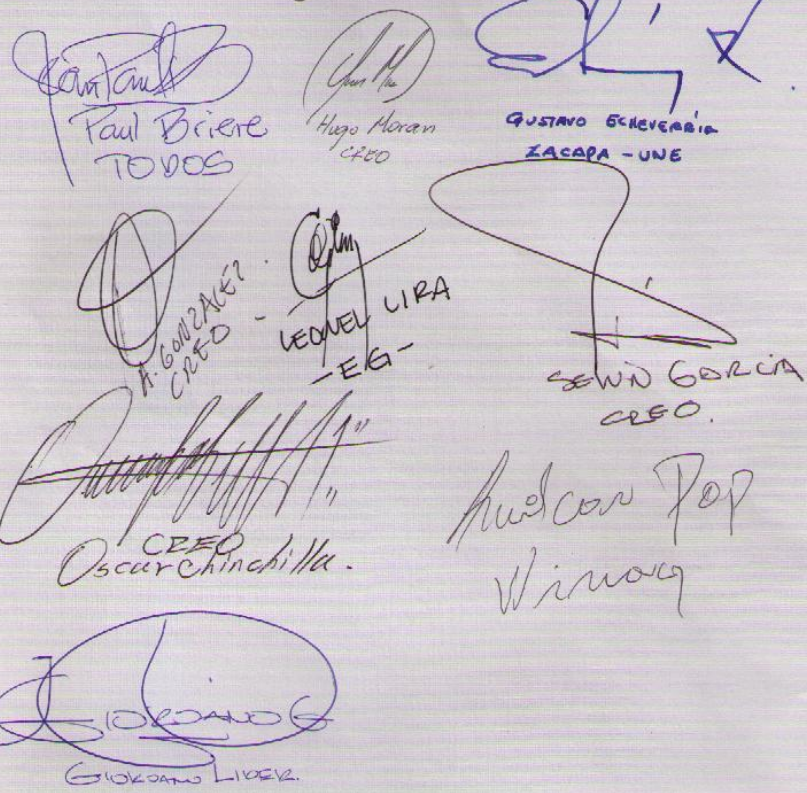 Paul Briere
TODOS
Hugo Moran
CREO
GUSTAVO ECHEVERRIA
ZACAPA - UNE
A. GONZALEZ
CREO -
LEONEL LIRA
- EG -
SELVIN GARCIA
CREO.
CREO
Oscar Chinchilla.
Amilcar Pop
Winaq
GIORDANO G
GIORDANO LIDER.